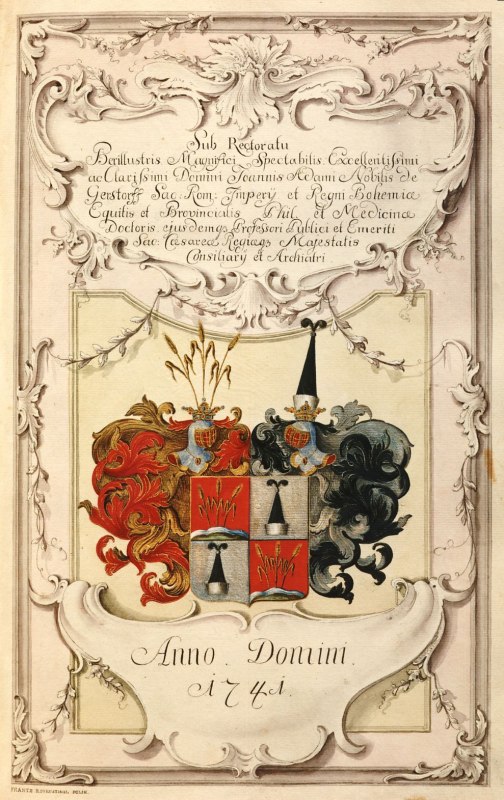 Sub Rectoratu
Perillustris Magnifici Spectabilis Excellentissimi
ac Clarissimi Domini Joannis Adami Nobilis de
Gerstorff Sac: Rom: Imperÿ et Regni Bohemiæ
Equitis et Provincialis Phil: et Medicinæ
Doctoris ejusdemqꝫ Professori Publici et Emeriti
Sac: Cæsareæ Regiaeqꝫ Majestatis
Consiliarÿ et Archiatri
Anno. Domini.
1741.
FRANTZ PINX.